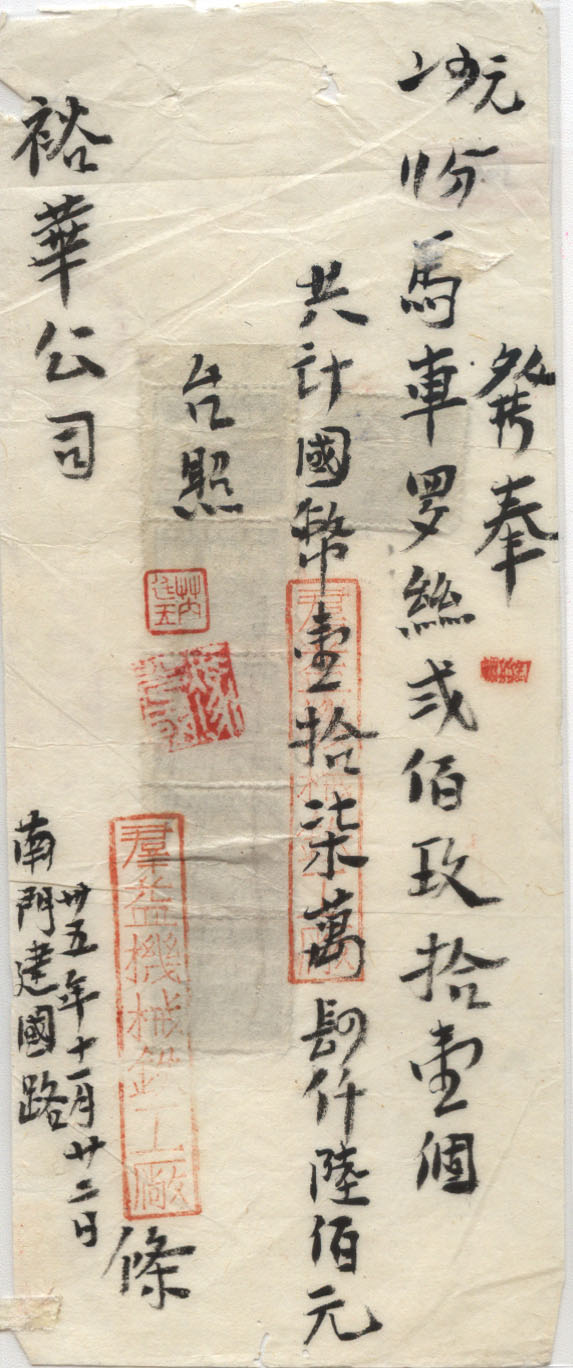 發奉
馬車罗絲弍佰玖拾壹個
共計國幣壹拾柒萬肆仟陸佰元
台照
羣益機械鐵工廠
條
卅五年十一月廿二日
南門建國路
裕華公司